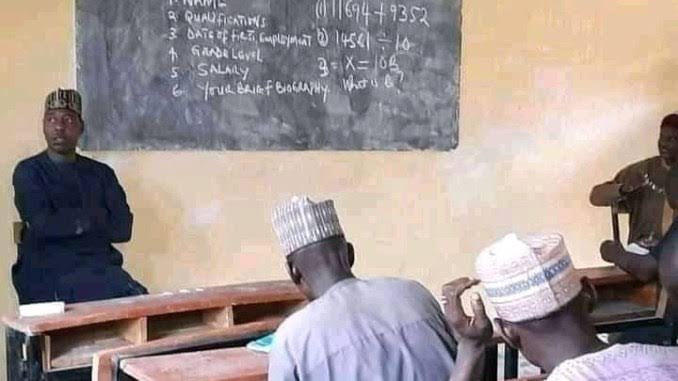 1. NAME
2 QUALIFICATIONS
3 DATE OF FIRST, EMPLOYMENT
4 GRADE LEVEL
5 SALARY
6 YOUR BRIEF BIOGRAPHY.
11694 + 9352
b) 14561 ÷ 10
= X = 10
What is